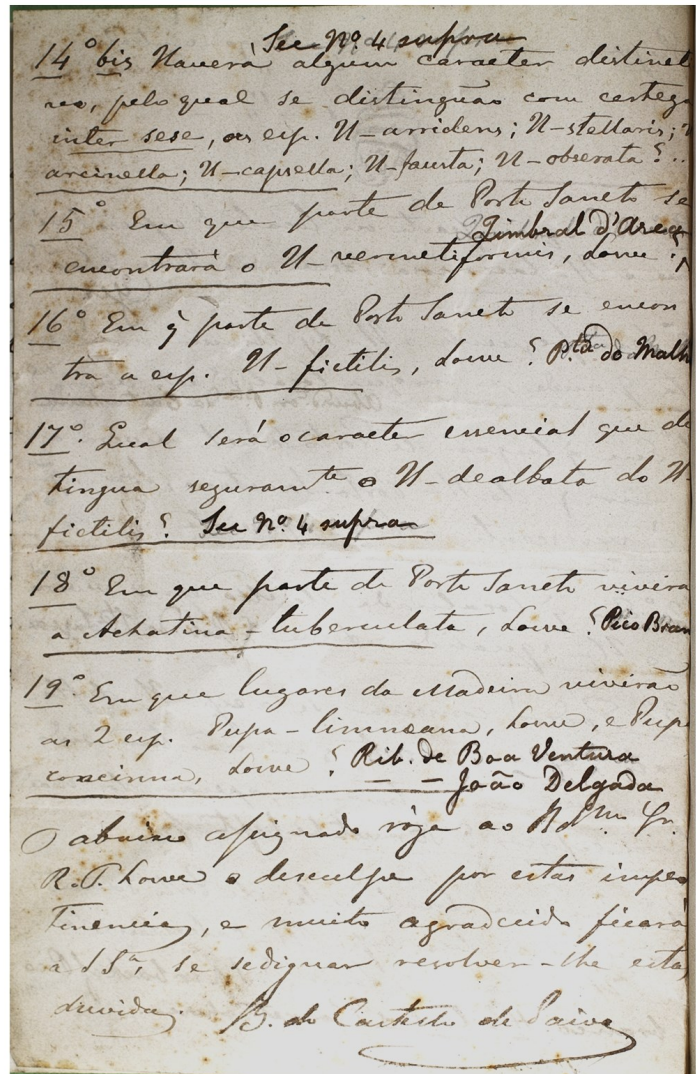 See Nº. 4 supra
14º bis Haverá algum caracter distinct
ivo, pelo qual se distinguão com certeza
inter sese, as esp. H-arridens; H-stellaris;
arcinella; H-capsella; H-fausta; H-obserata? ..
15º Em que parte de Porto Sancto se
Zimbral d'Area
encontrará o H-vermetiformis, Lowe?
16º Em q̃ parte de Porto Sancto se encon
tra a esp. H-fictilis, Lowe? P.ta do Malh
17º. Qual será o caracter essencial que de
tingua seguramte o H-dealbata do H-
fictilis? See Nº. 4 supra
18º Em que parte de Porto Sancto vivira
a Achatina-tuberculata, Lowe? Pico Bran
19º. Em que lugares da Madeira vivirão
as 2 esp. Pupa-limnæana, Lowe, e Pupa
concinna, Lowe? Rib. de Boa Ventura
— — João Delgada
O abaixo assignado róga ao Rdmo Sr.
R. T. Lowe o desculpe por estas impe
tinencia, e muito agradecido ficará
a S Sa, se se dignar resolver-lhe estas
duvida. B. do Castello de Paiva